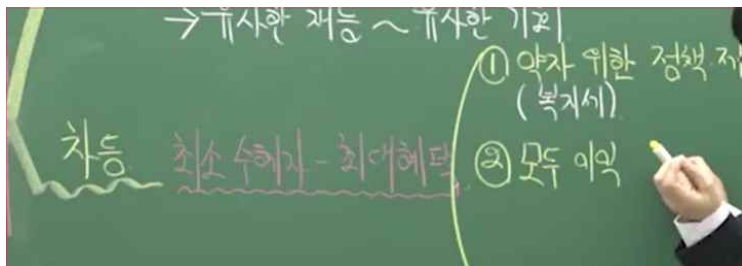 →유사한 재능 ~ 유사한 기회
① 약자 위한 정책
(복지세)
차등 최소 수혜자 - 최대혜택
② 모두 이익